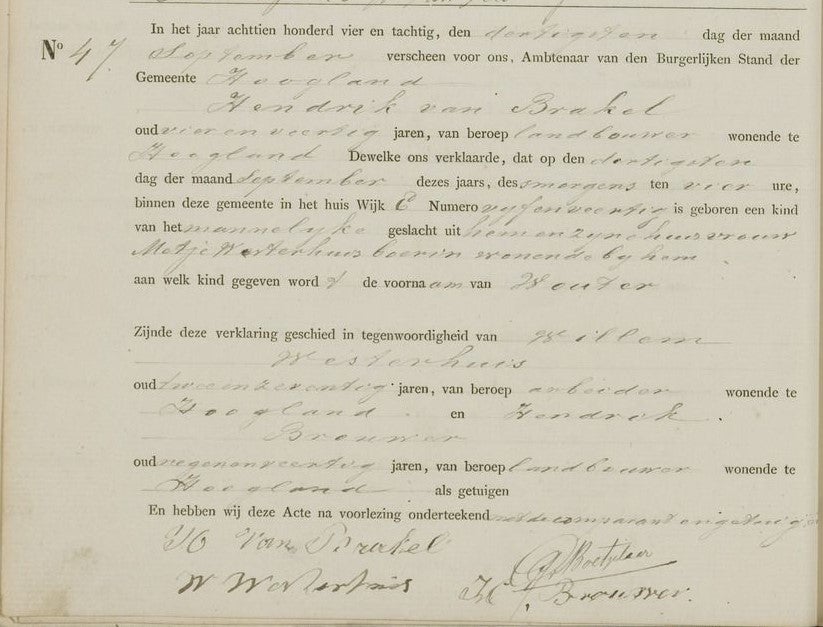 No 47.
In het jaar achttien honderd vier en tachtig, den dertigsten dag der maand
September verscheen voor ons, Ambtenaar van den Burgerlijken Stand der
Gemeente Hoogland
Hendrik van Brakel
oud vier en veertig jaren, van beroep landbouwer wonende te
Hoogland Dewelke ons verklaarde, dat op den dertigsten
dag der maand September dezes jaars, des smorgens ten vier ure,
binnen deze gemeente in het huis Wijk C Numero vyfenveertig is geboren een kind
van het mannelyke geslacht uit hem en zyne huisvrouw
Metje Westerhuis boerin wonende by hem
aan welk kind gegeven word t de voornaam van Wouter
Zijnde deze verklaring geschied in tegenwoordigheid van Willem
Westerhuis
oud tweeenzeventig jaren, van beroep arbeider wonende te
Hoogland en Hendrik
Brouwer
oud negenenveertig jaren, van beroep landbouwer wonende te
Hoogland als getuigen
En hebben wij deze Acte na voorlezing onderteekend met de comparant en getuigen
H Van Brakel
W Westerhuis
H. Brouwer.